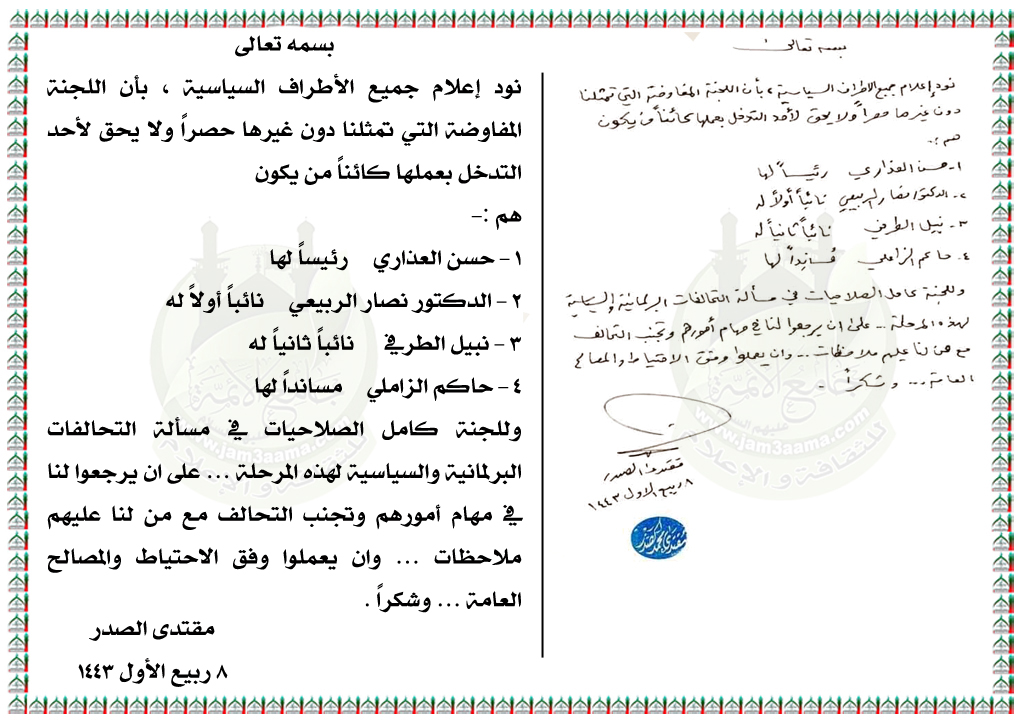 بسمه تعالى
نود إعلام جميع الاطراف السياسية ، بأن اللجنة المفاوضة التي تمثلنا
دون غيرها حصراً ولا يحق لأحد التدخل بعملها كائناً من يكون
هم :-
١- حسن العذاري رئيساً لها
٢- الدكتور نصار الربيعي نائباً أولاً له
٣- نبيل الطرفي نائباً ثانياً له
٤- حاكم الزاملي مُسانِداً لها
وللجنة كامل الصلاحيات في مسألة التحالفات البرلمانية والسياسية
لهذه المرحلة ... على ان يرجعوا لنا في مهام أمورهم وتجنب التحالف
مع من لنا عليهم ملاحظات ... وان يعملوا وفق الاحتياط والمصالح
العامة ... وشكراً .
مقتدى الصدر
٨ ربيع الاول ١٤٤٣
بسمه تعالى
نود إعلام جميع الأطراف السياسية ، بأن اللجنة
المفاوضة التي تمثلنا دون غيرها حصراً ولا يحق لأحد
التدخل بعملها كائناً من يكون
هم :-
١ - حسن العذاري رئيساً لها
٢ - الدكتور نصار الربيعي نائباً أولاً له
٣ - نبيل الطرفي نائباً ثانياً له
٤ - حاكم الزاملي مسانداً لها
وللجنة كامل الصلاحيات في مسألة التحالفات
البرلمانية والسياسية لهذه المرحلة ... على ان يرجعوا لنا
في مهام أمورهم وتجنب التحالف مع من لنا عليهم
ملاحظات ... وان يعملوا وفق الاحتياط والمصالح
العامة ... وشكراً .
مقتدى الصدر
٨ ربيع الأول ١٤٤٣
www.jam3aama.com
للثقافة والإعلام